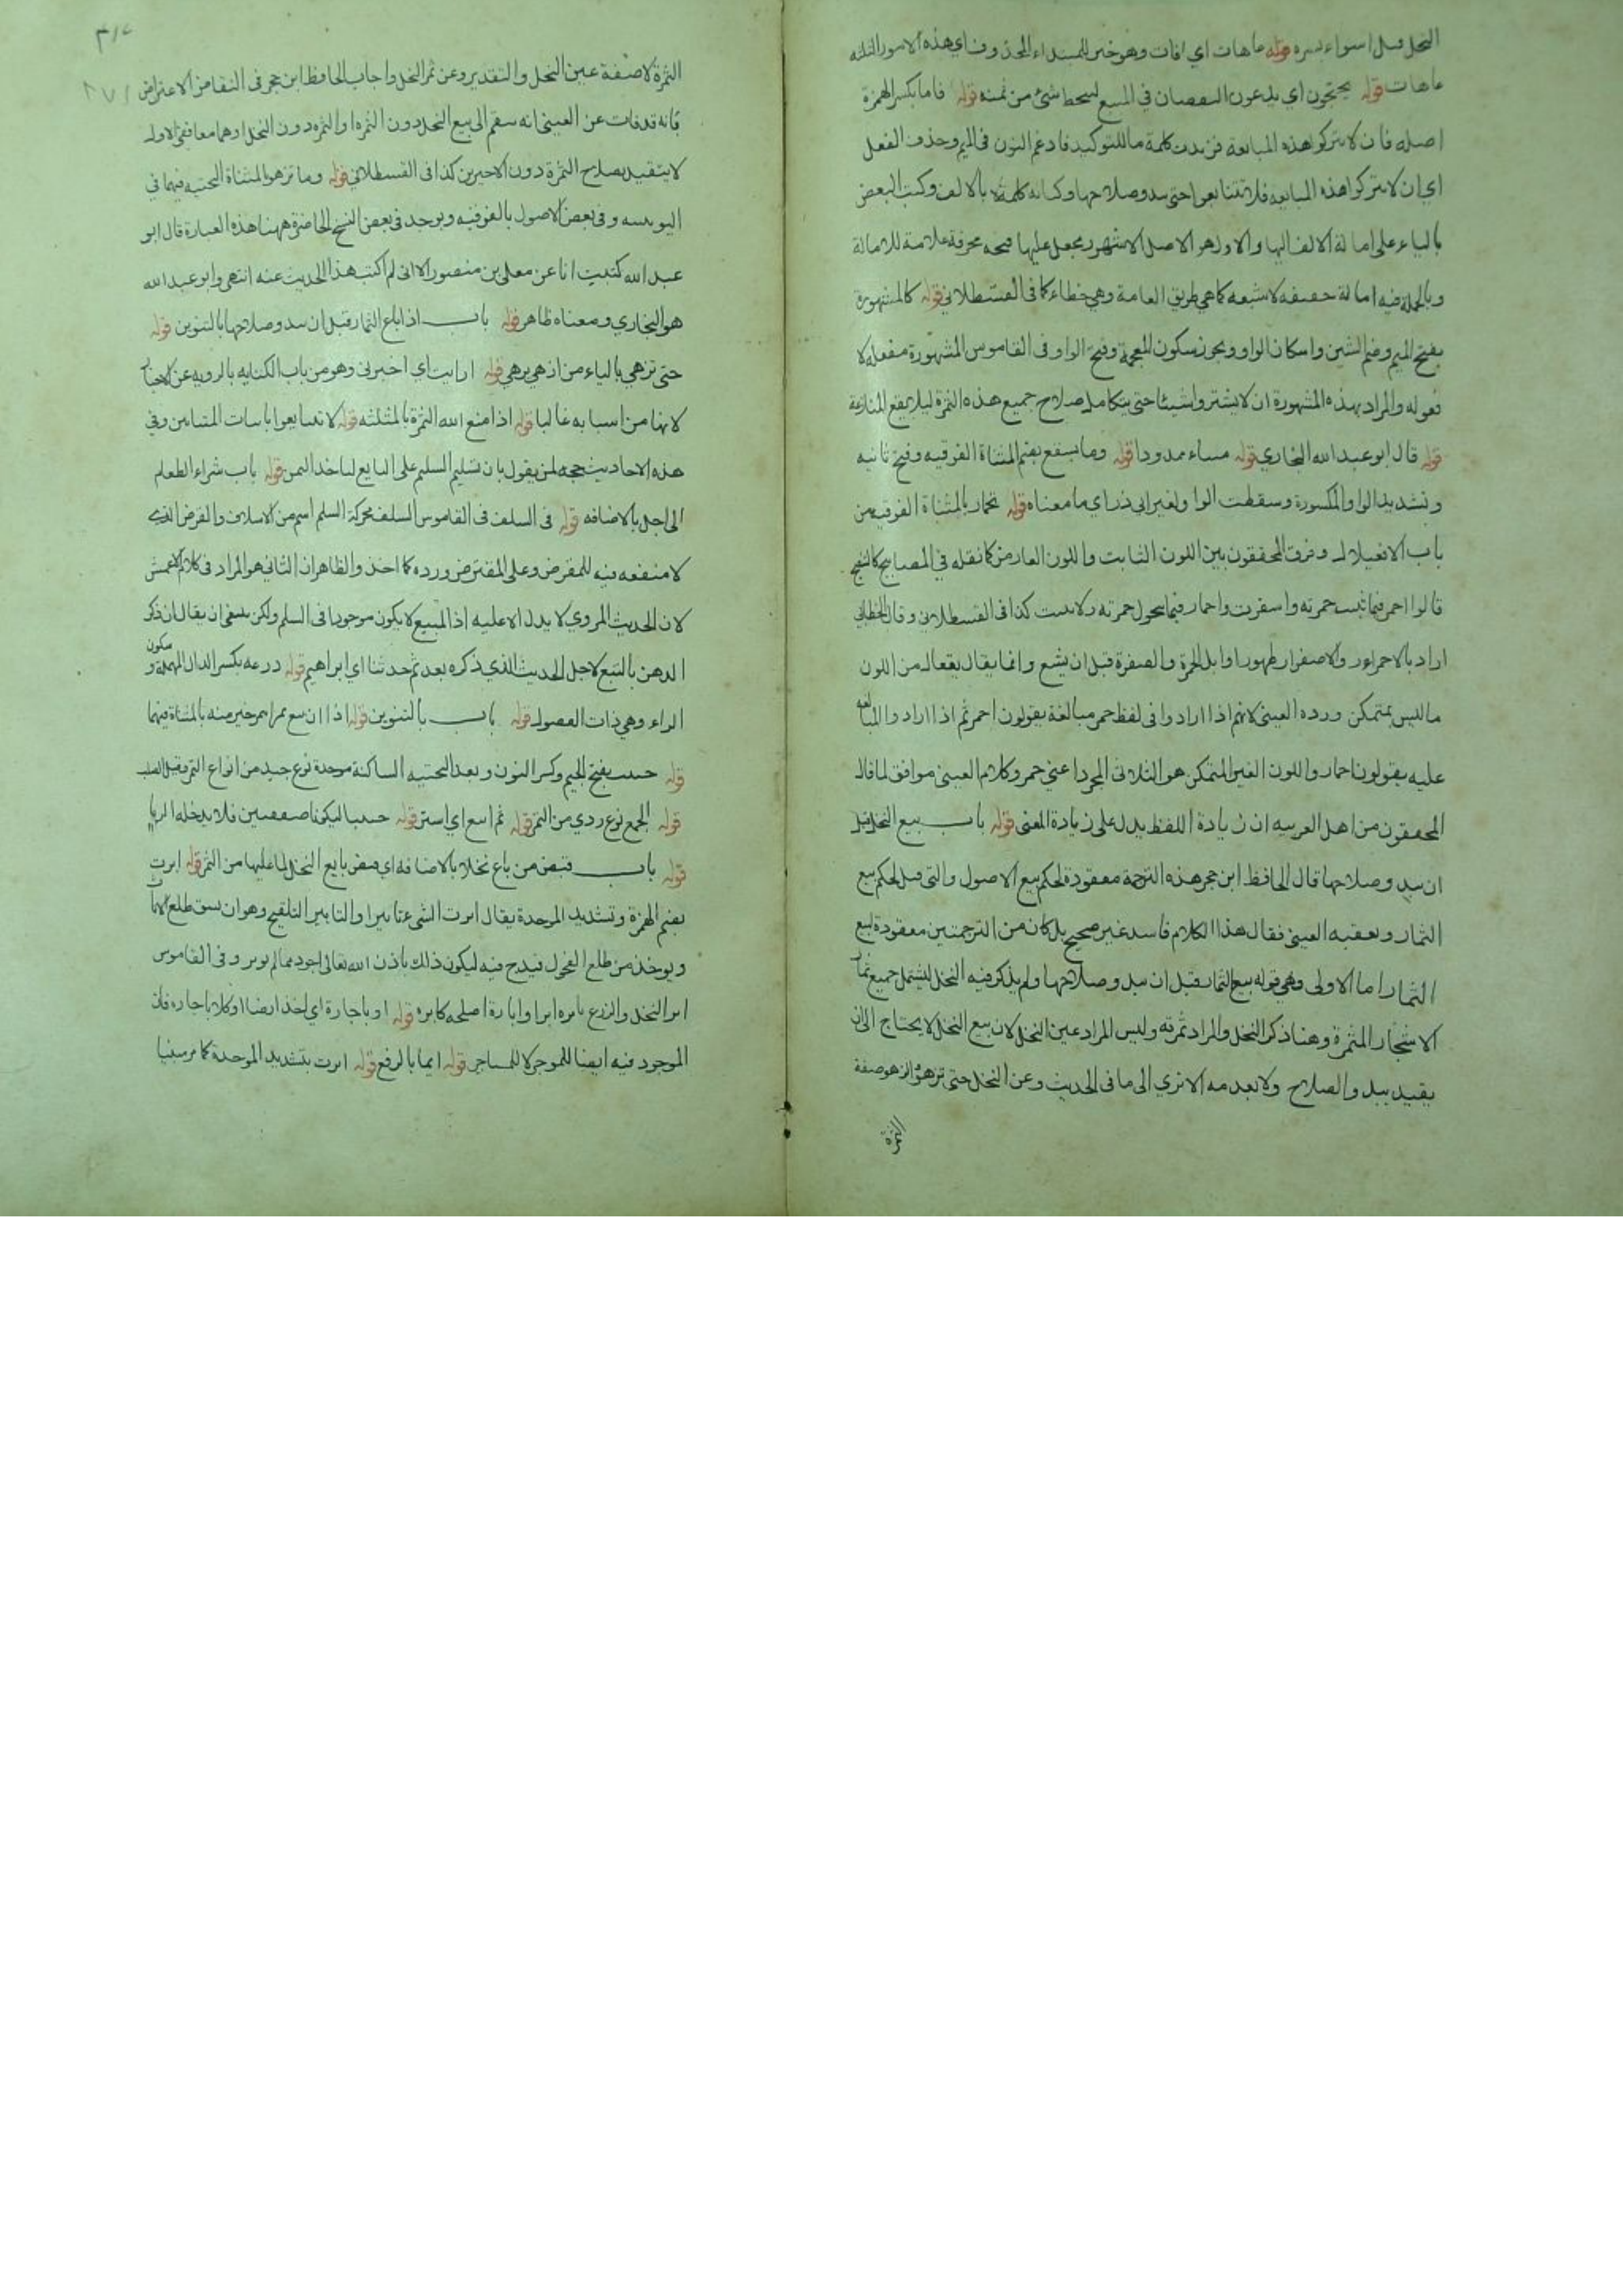 النخل قبل اسواء بسره قوله عاهات اي افات وهو خبر للمبتداء المحذوف اي هذه الامور الثلثة
عاهات قوله يحتجون اي يدعون النقصان في المبيع ليحط شئ من ثمنه قوله فاما بكسر الهمزة
اصله فان لا تتركوا هذه المبايعة فزيدت كلمة ما للتوكيد فادغم النون في الميم وحذف الفعل
اي ان لا تتركوا هذه المبايعه فلا تتبايعوا حتى يبدو صلاحها وكتابه كلمة لا بالالف وكتب البعض
بالياء على امالة الالف اليها والاول هو الاصل الاشهر ويجعل عليها فتحه محرفة علامة للامالة
وبالجملة فيه امالة خفيفه لا شبعه كما هي طريق العامة وهي خطاء كما في القسطلاني قوله كالمشهورة
بفتح الميم وضم الشين واسكان الواو ويجوز سكون المعجمة وفتح الواو وفى القاموس المشهورة مفعله لا
فعوله والمراد بهذه المشهورة ان لا يشتروا شيئا حتى يتكامل صلاح جميع هذه الثمرة ليلا يقع المنازعة
قوله قال ابو عبد الله البخاري قوله مساء ممدودا قوله وما بسقع بضم المثناة الفوقيه وفتح ثانيه
وتشديد الواو المكسورة وسقطت الواو لغير ابي ذر اي ما معناه قوله تحمار بالمثناة الفوقيه من
باب الافعيلال وفرق المحققون بين اللون الثابت واللون العارض كما نقله في المصابيح كالتنقيح
قالوا احمر فيما ثبت حمرته واسفرت واحمار فيما يتحول حمرته ولا يثبت كذا فى القسطلاني وقال الخطابي
اراد بالاحمرار والاصفرار ظهور اوايل الحمرة والصفرة قبل ان يشبع وانما يقال يفعال من اللون
ما ليس بمتمكن ورده العينى لانهم اذا ارادوا فى لفظ حمر مبالغة يقولون احمر ثم اذا ارادوا المبالغة
عليه يقولون احمار واللون الغير المتمكن هو الثلاثى المجرد اعني حمر وكلام العيني موافق لما قال
المحققون من اهل العربيه ان زيادة اللفظ يدل على زيادة المعنى قوله باب بيع النخل قبل
ان يبدو صلاحها قال الحافظ ابن حجر هذه الترجمة معقودة لحكم بيع الاصول والتى قبل لحكم بيع
الثمار وتعقبه العيني فقال هذا الكلام فاسد غير صحيح بل كان من الترجمتين معقودة لبيع
الثمار اما الاولى وهي قوله بيع الثمار قبل ان يبدو صلاحها ولم يذكر فيه النخل ليشتمل جميع ثمار
الاشجار المثمرة وهنا ذكر النخل والمراد ثمرته وليس المراد عين النخل لان بيع النخل لا يحتاج الى ان
يقيد ببدو الصلاح ولا بعدمه الا تري الى ما فى الحديث وعن النخل حتى تزهو الزهو صفة
الثمرة
الثمرة لا صفة عين النخل والتقدير وعن ثمر النخل واجاب الحافظ ابن حجر فى انتقاض الاعتراض
بانه قد فات عن العينى انه ينقسم الى بيع النخل دون الثمره او الثمره دون النخل او هما معا ففى الاول
لا يتقيد بصلاح الثمرة دون الاخيرين كذا فى القسطلاني قوله وما تزهو بالمثناة التحتيه فيهما في
اليونينيه وفى بعض الاصول بالفوقيه ويوجد فى بعض النسخ الحاضرة ههنا هذه العبارة قال ابو
عبد الله كتبت انا عن معلى بن منصور الا انى لم اكتب هذا الحديث عنه انتهى وابو عبد الله
هو البخاري ومعناه ظاهر قوله باب اذا باع الثمار قبل ان يبدو صلاحها بالتنوين قوله
حتى تزهي بالياء من ازهي يزهي قوله ارايت اي اخبرنى وهو من باب الكنايه بالرويه عن الاخبار
لانها من اسبابه غالبا قوله اذا منع الله الثمرة بالمثلثه قوله لا تتبايعوا باثبات المتتابين وفي
هذه الاحاديث حجه لمن يقول بان تسليم السلم على البايع لما خذ الثمن قوله باب شراء الطعام
الى اجل بالاضافه قوله فى السلف فى القاموس السلف محركة السلم اسم من الاسلاف والقرض الذي
لا منفعه فيه للمقرض وعلى المقترض ورده كما اخذ والظاهر ان الثاني هو المراد فى كلام الاعمش
لان الحديث المروي لا يدل الا عليه اذ المبيع لا يكون موجودا فى السلم ولكن ينبغي ان يقال ان ذكر
الرهن بالتبع لاجل الحديث الذي ذكره بعد ثم حدثنا اي ابراهيم قوله درعه بكسر الدال المهملة وسكون
الراء وهي ذات الفضول قوله باب بالتنوين قوله اذا ان بيع تمرا بتمر خير منه بالمثناة فيهما
قوله جنيب بفتح الجيم وكسر النون وبعد التحتيه الساكنة موحدة نوع جيد من انواع التمر وقيل الصلب
قوله الجمع نوع ردي من التمر قوله ثم ابتع اي اشتر قوله جنيبا ليكونا صفقتين فلا يدخله الربا
قوله باب قبض من باع نخلا بالاضافه اي قبض بايع النخل لما عليها من التمر قوله ابرت
بضم الهمزة وتشديد الموحدة يقال ابرت الشئ تابيرا والتابير التلقيح وهو ان يشق طلع الاناث
ويوخذ من طلع الفحول فيدرج فيه ليكون ذلك باذن الله تعالى اجود مما لم يوبر وفى القاموس
ابر النخل والزرع يابره ابرا وابارة اصلحه كابره قوله او باجارة اي اخذ ارضا او كلا باجاره فان
الموجود فيه ايضا للموجر لا للمستاجر قوله ايما بالرفع قوله ابرت بتشديد الموحدة كما مر مبنيا